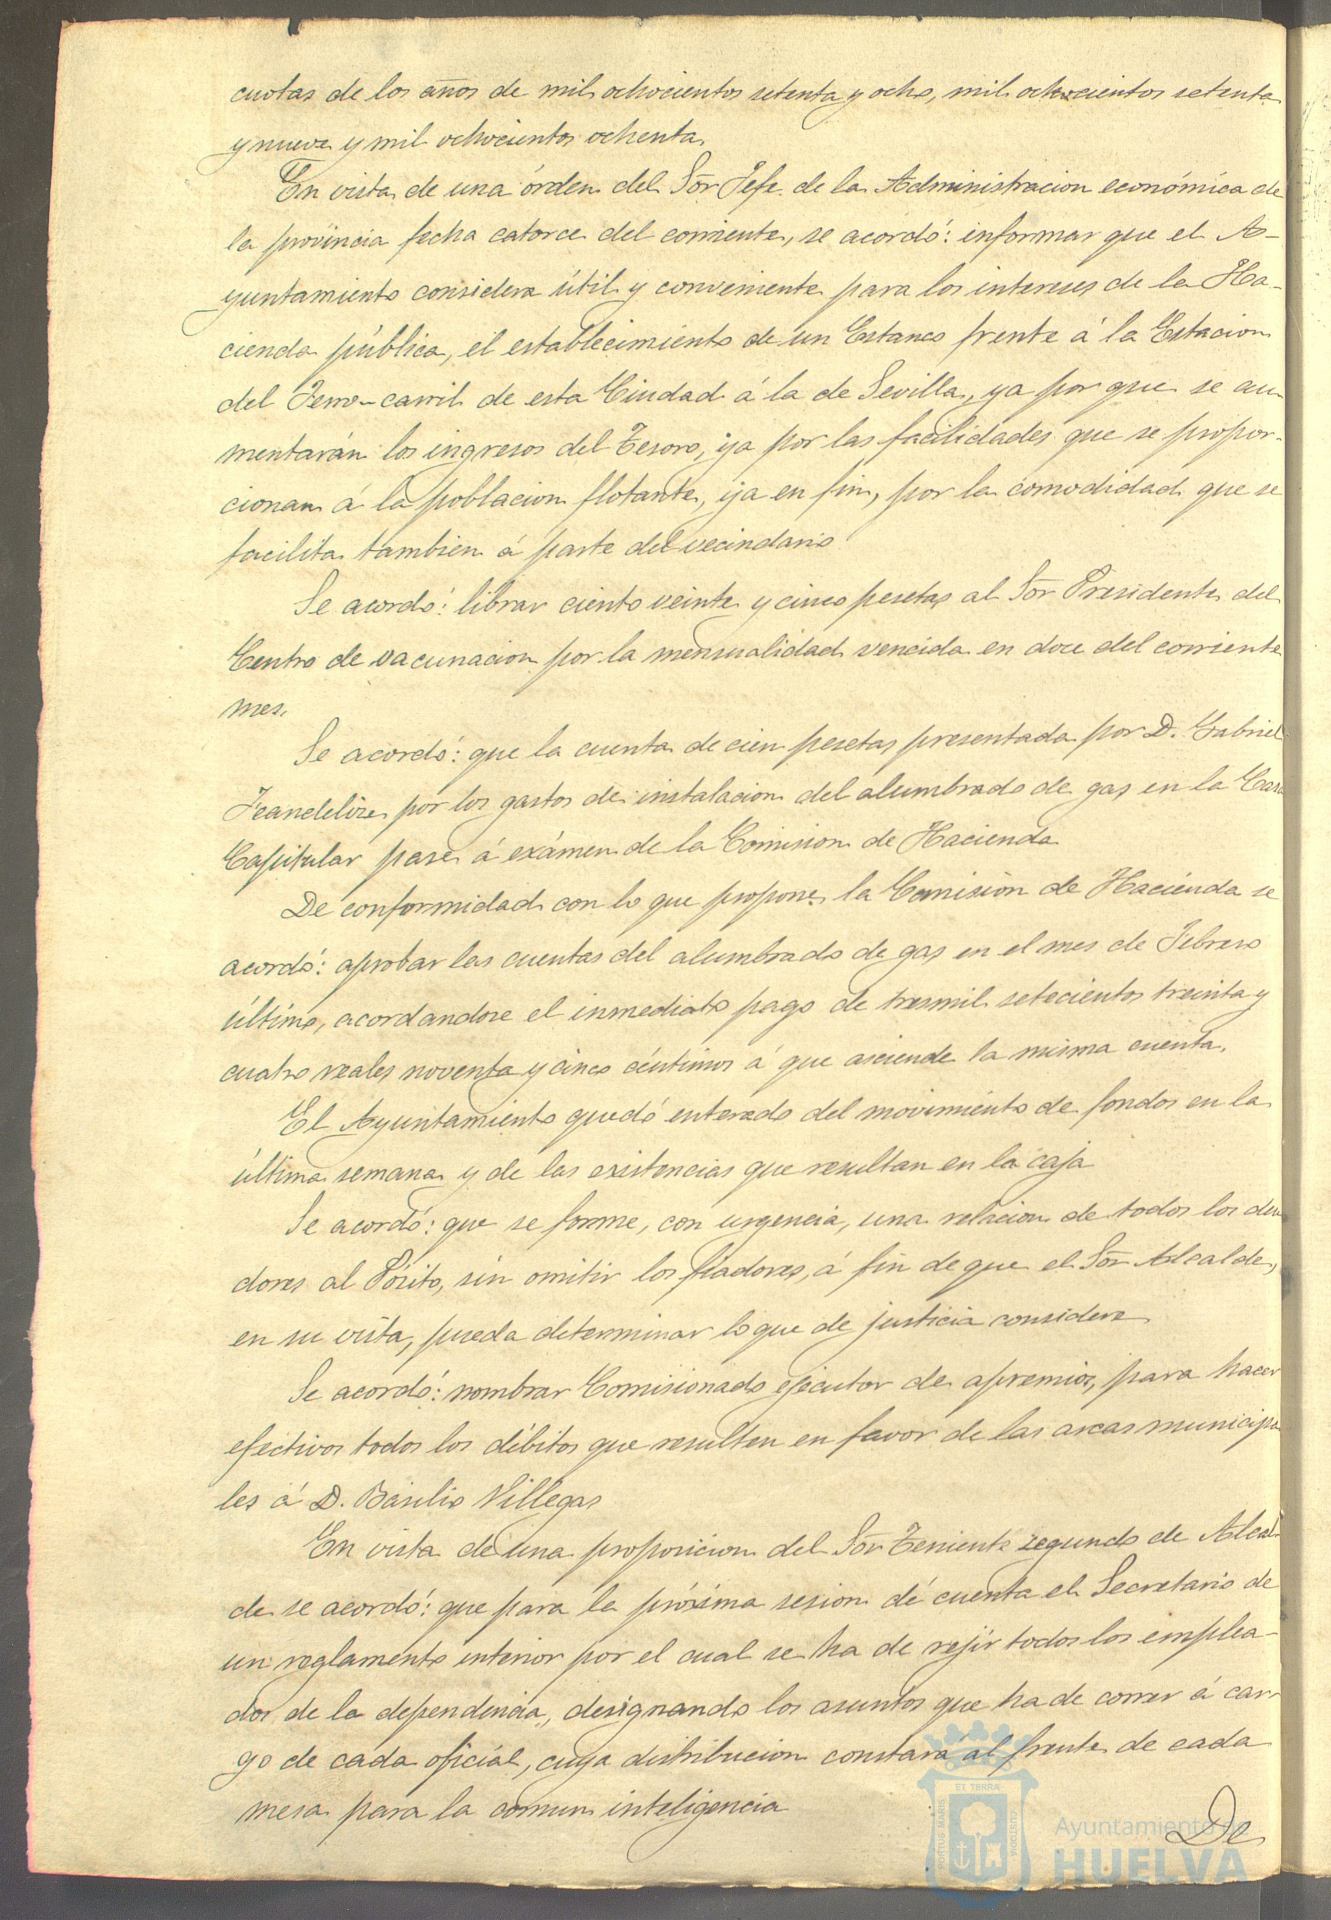 cuotas de los años de mil ochocientos setenta y ocho, mil ochocientos setenta
y nueve y mil ochocientos ochenta.
En vista de una órden del Sōr Jefe de la Administracion económica de
la provincia fecha catorce del corriente, se acordó: informar que el A-
yuntamiento considera útil y conveniente para los intereses de la Ha-
cienda pública, el establecimiento de un Estanco frente á la Estacion
del Ferro-carril de esta Ciudad á la de Sevilla, ya por que se au-
mentarán los ingresos del Tesoro, ya por las facilidades que se propor-
cionan á la poblacion flotante, ya en fin, por la comodidad que se
facilita tambien á parte del vecindario
Se acordó: librar ciento veinte y cinco pesetas al Sōr Presidente del
Centro de vacunacion por la mensualidad vencida en doce del corriente
mes.
Se acordó: que la cuenta de cien pesetas presentada por D. Gabriel
por los gastos de instalacion del alumbrado de gas en la Casa
Capitular pase á exámen de la Comision de Hacienda
De conformidad con lo que propone la Comision de Hacienda se
acordó: aprobar las cuentas del alumbrado de gas en el mes de Febrero
último, acordandose el inmediato pago de tresmil setecientos treinta y
cuatro reales noventa y cinco céntimos á que asciende la misma cuenta.
El Ayuntamiento quedó enterado del movimiento de fondos en la
última semana y de las existencias que resultan en la caja
Se acordó: que se forme, con urgencia, una relacion de todos los deu
dores al Pósito, sin omitir los fiadores, á fin de que el Sōr Alcalde,
en su vista, pueda determinar lo que de justicia considere
Se acordó: nombrar Comisionado ejecutor de apremios, para hacer
efectivos todos los débitos que resulten en favor de las arcas municipa
les á D. Basilio Villegas
En vista de una proposicion del Sōr Teniente segundo de Alcal-
de se acordó: que para la próxima sesion dé cuenta el Secretario de
un reglamento interior por el cual se ha de rejir todos los emplea-
dos de la dependencia, designando los asuntos que ha de correr á car-
go de cada oficial, cuya distribucion constará al frente de cada
mesa para la comun inteligencia
De
PORTUS MARIS ET TERRAE CUSTODIA
Ayuntamiento de
HUELVA